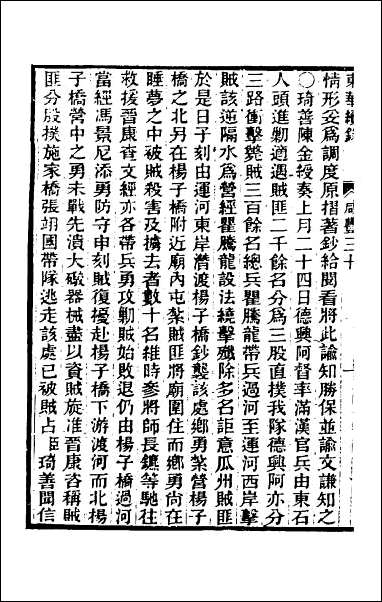 東華續錄 咸豐三十
情形妥爲調度原摺著鈔給閱看將此諭知勝保並諭文謙知之
○琦善陳金綬奏上月二十四日德興阿督率滿漢官兵由東石
人頭進勦適遇賊匪二千餘名分爲三股直撲我隊德興阿亦分
三路衝擊斃賊三百餘名總兵瞿騰龍帶兵過河至運河西岸擊
賊該逆隔水爲營經瞿騰龍設法繞擊殲除多名詎意瓜州賊匪
於是日子刻由運河東岸潛渡楊子橋鈔襲該處鄉勇紮營楊子
橋之北另在楊子橋附近廟內屯紮賊匪將廟圍住而鄉勇尚在
睡夢之中被賊殺害及擄去者數十名維時參將師長鑣等馳往
救援晉康查文經亦各帶兵勇攻勦賊始敗退仍由楊子橋過河
當經馮景尼添勇防守申刻賊復擾赴楊子橋下游渡河而北楊
子橋營中之勇未戰先潰大礮器械盡以資賊旋准晉康咨稱賊
匪分股撲施家橋張翊國帶隊逃走該處已被賊占臣琦善聞信